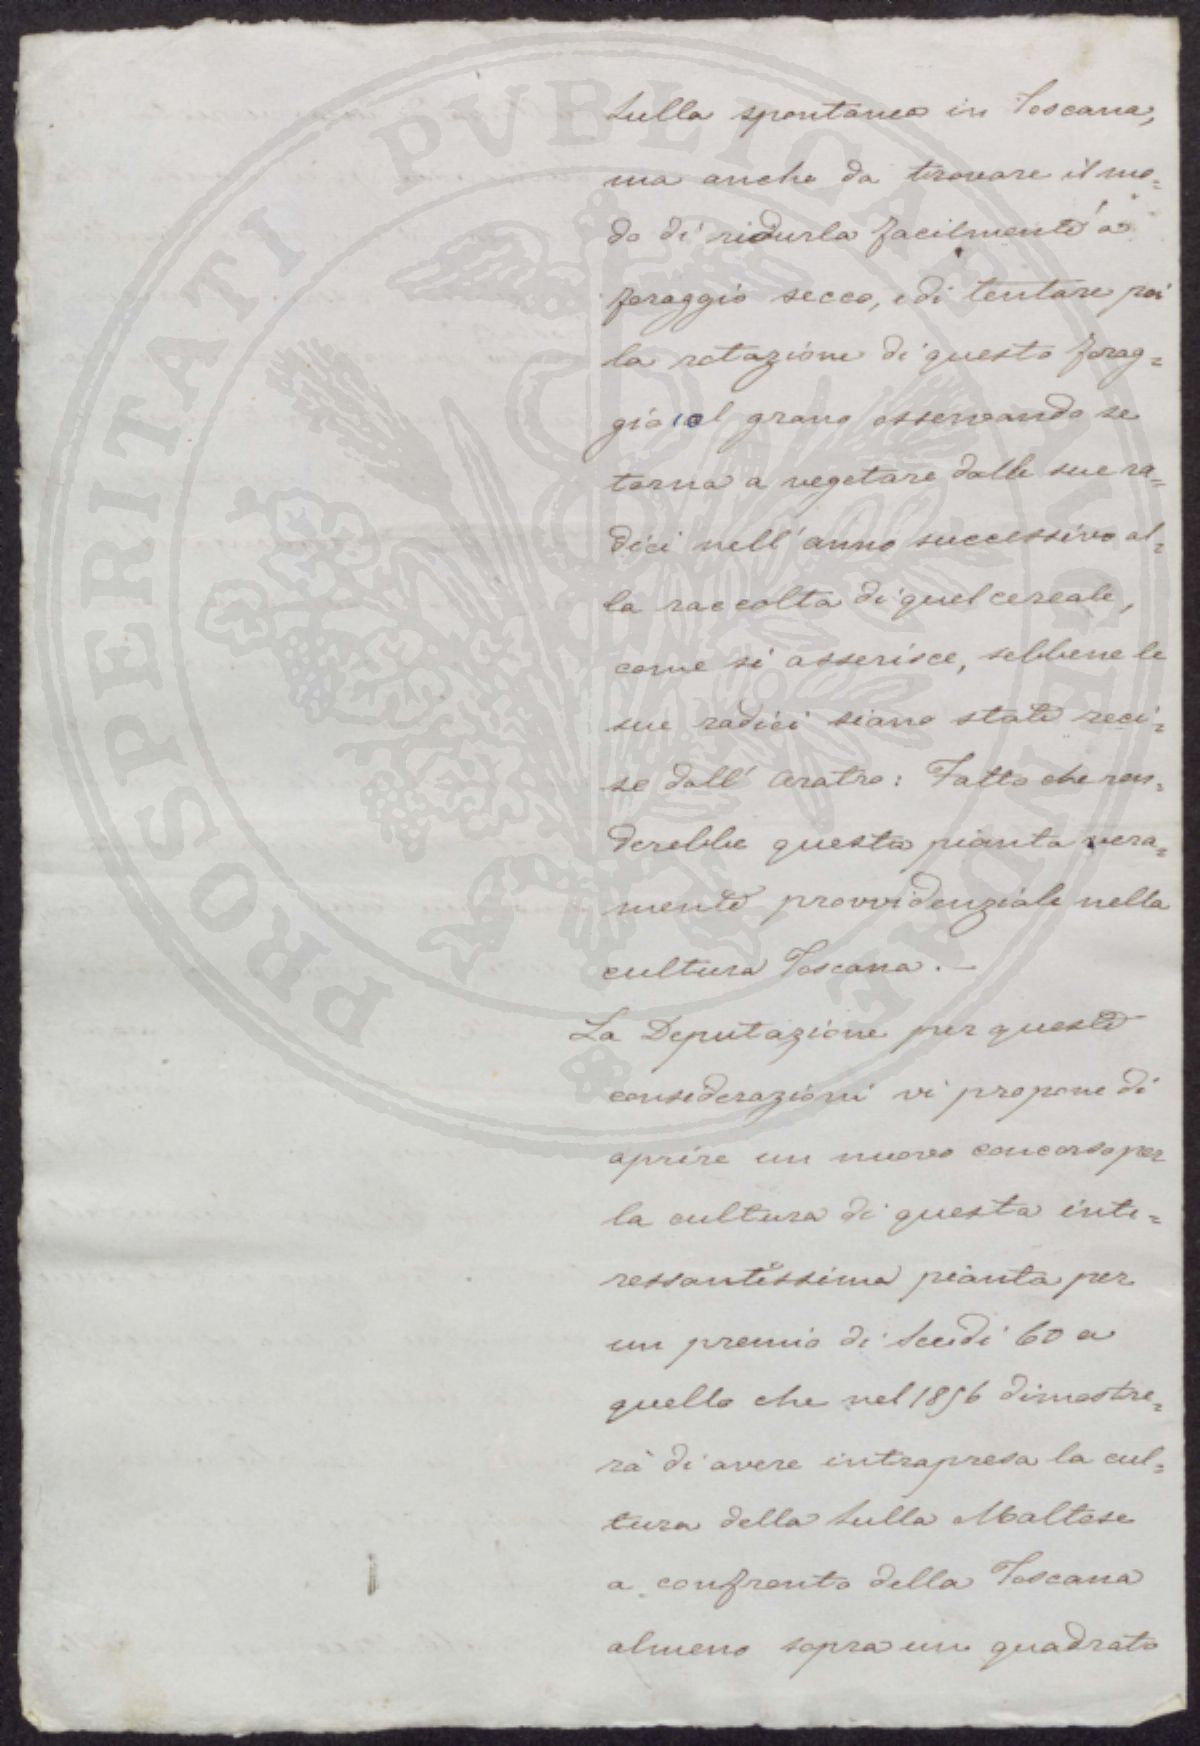 Sulla spontanea in Toscana,
ma anche da trovare il mo=
do di ridurla facilmente a
foraggio secco, e di tentare poi
la rotazione di questo forag=
gio col grano osservando se
torna a vegetare dalle sue ra=
dici nell'anno successivo al=
la raccolta di quel cereale,
come si asserisce, sebbene le
sue radici siano state reci=
se dall'aratro: Fatto che ren=
derebbe questa pianta vera=
mente provvidenziale nella
cultura Toscana. —
La Deputazione per queste
considerazioni vi propone di
aprire un nuovo concorso per
la cultura di questa inte=
ressantissima pianta per
un premio di Scudi 60 a
quello che nel 1856 dimostre=
rà di avere intrapresa la cul=
tura della Sulla Maltese
a confronto della Toscana
almeno sopra un quadrato
PROSPERITATI PVBLICAE AVGENDAE